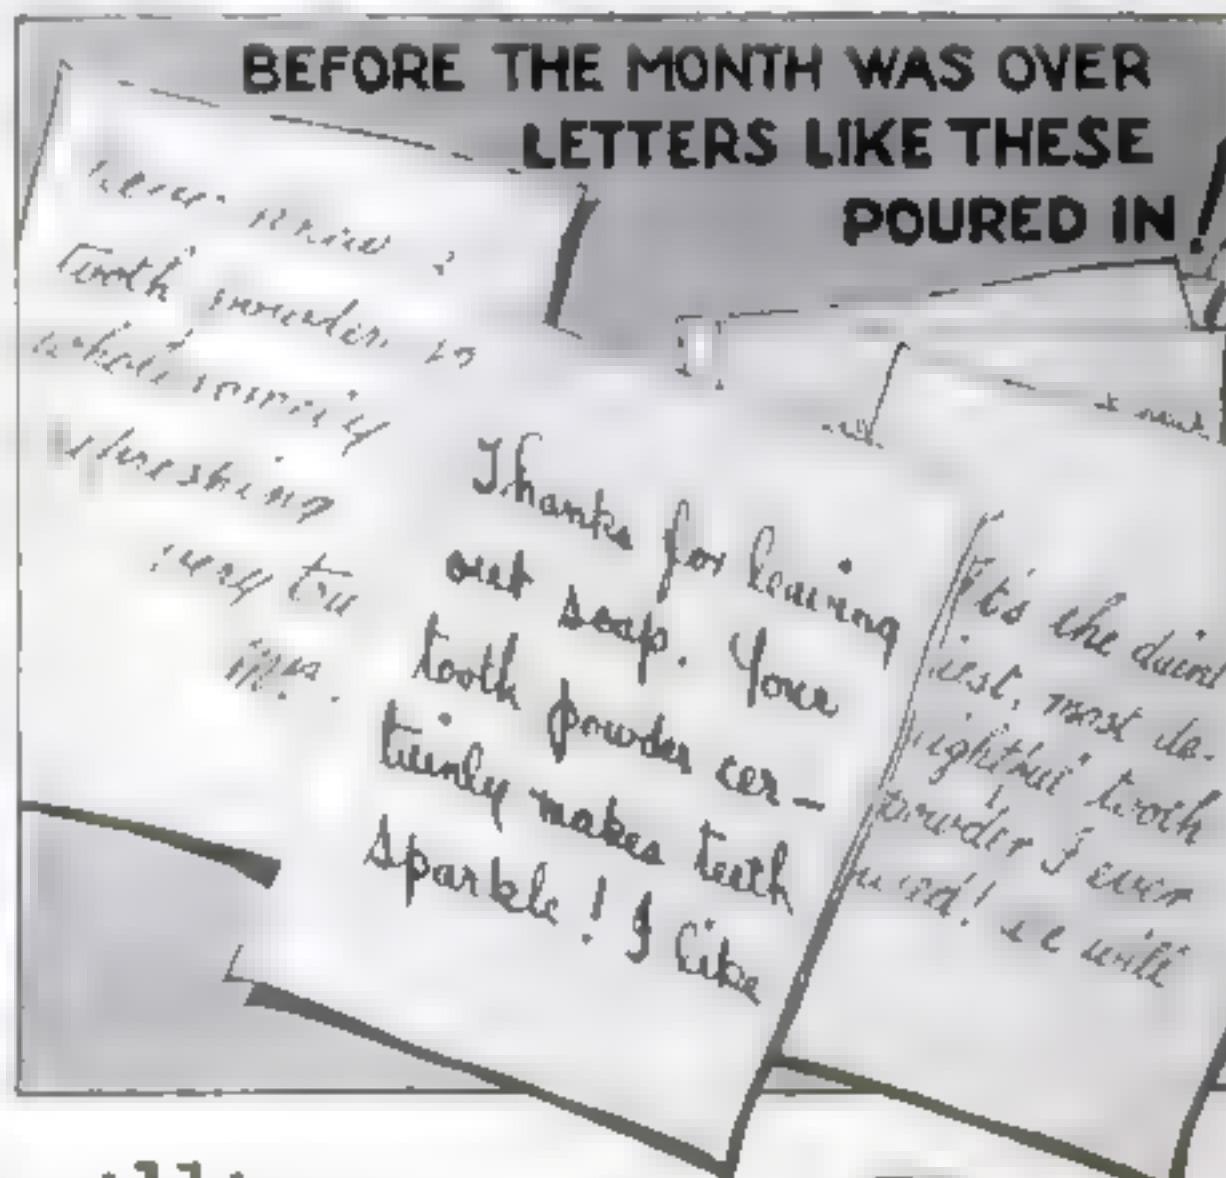 BEFORE THE MONTH WAS OVER
LETTERS LIKE THESE
POURED IN!
tooth powder is
refreshing
very
Thanks for leaving
out soap. Your
tooth powder cer-
tainly makes teeth
sparkle! I like
It's the daint
iest, most de-
lightful tooth
powder I ever
used! will